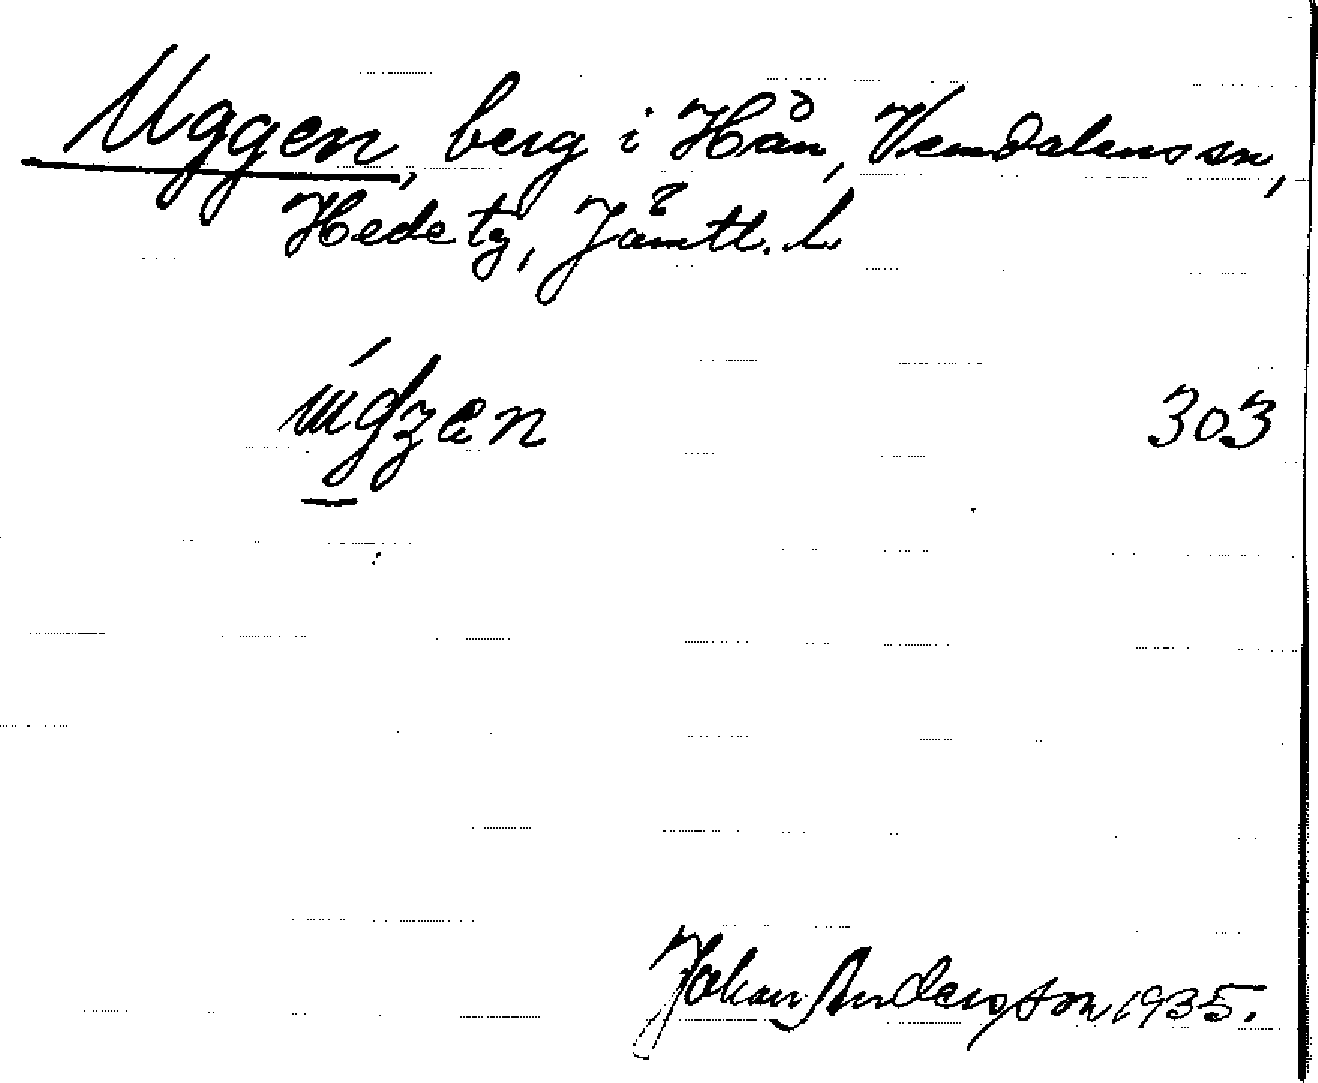 Uggen, berg i Hån, Vemdalens sn,
Hede tg, Jämtl. l.
303
Johan Anderson 1935.